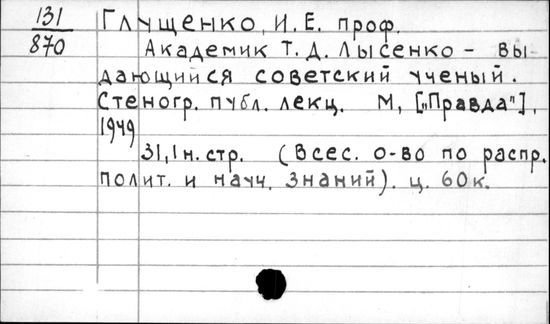 131
870
Глущенко, И. Е. проф.
Академик Т. Д. Лысенко – вы-
дающийся советский ученый.
Стеногр. публ. лекц. М, [„Правда"],
1949
31, 1 н. стр. (Всес. о-во по распр.
полит. и научн. знаний). ц. 60 к.